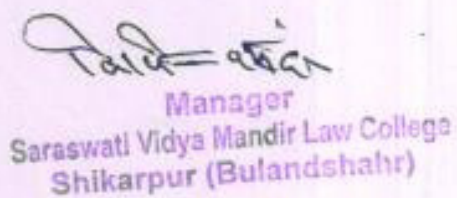 Manager
Saraswati Vidya Mandir Law College
Shikarpur (Bulandshahr)